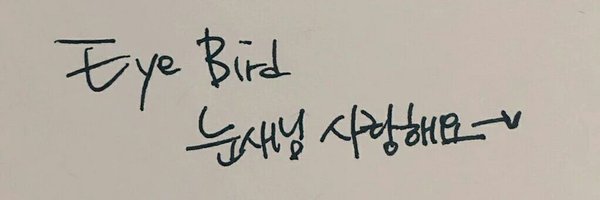 Eye Bird
눈새님 사랑해요→